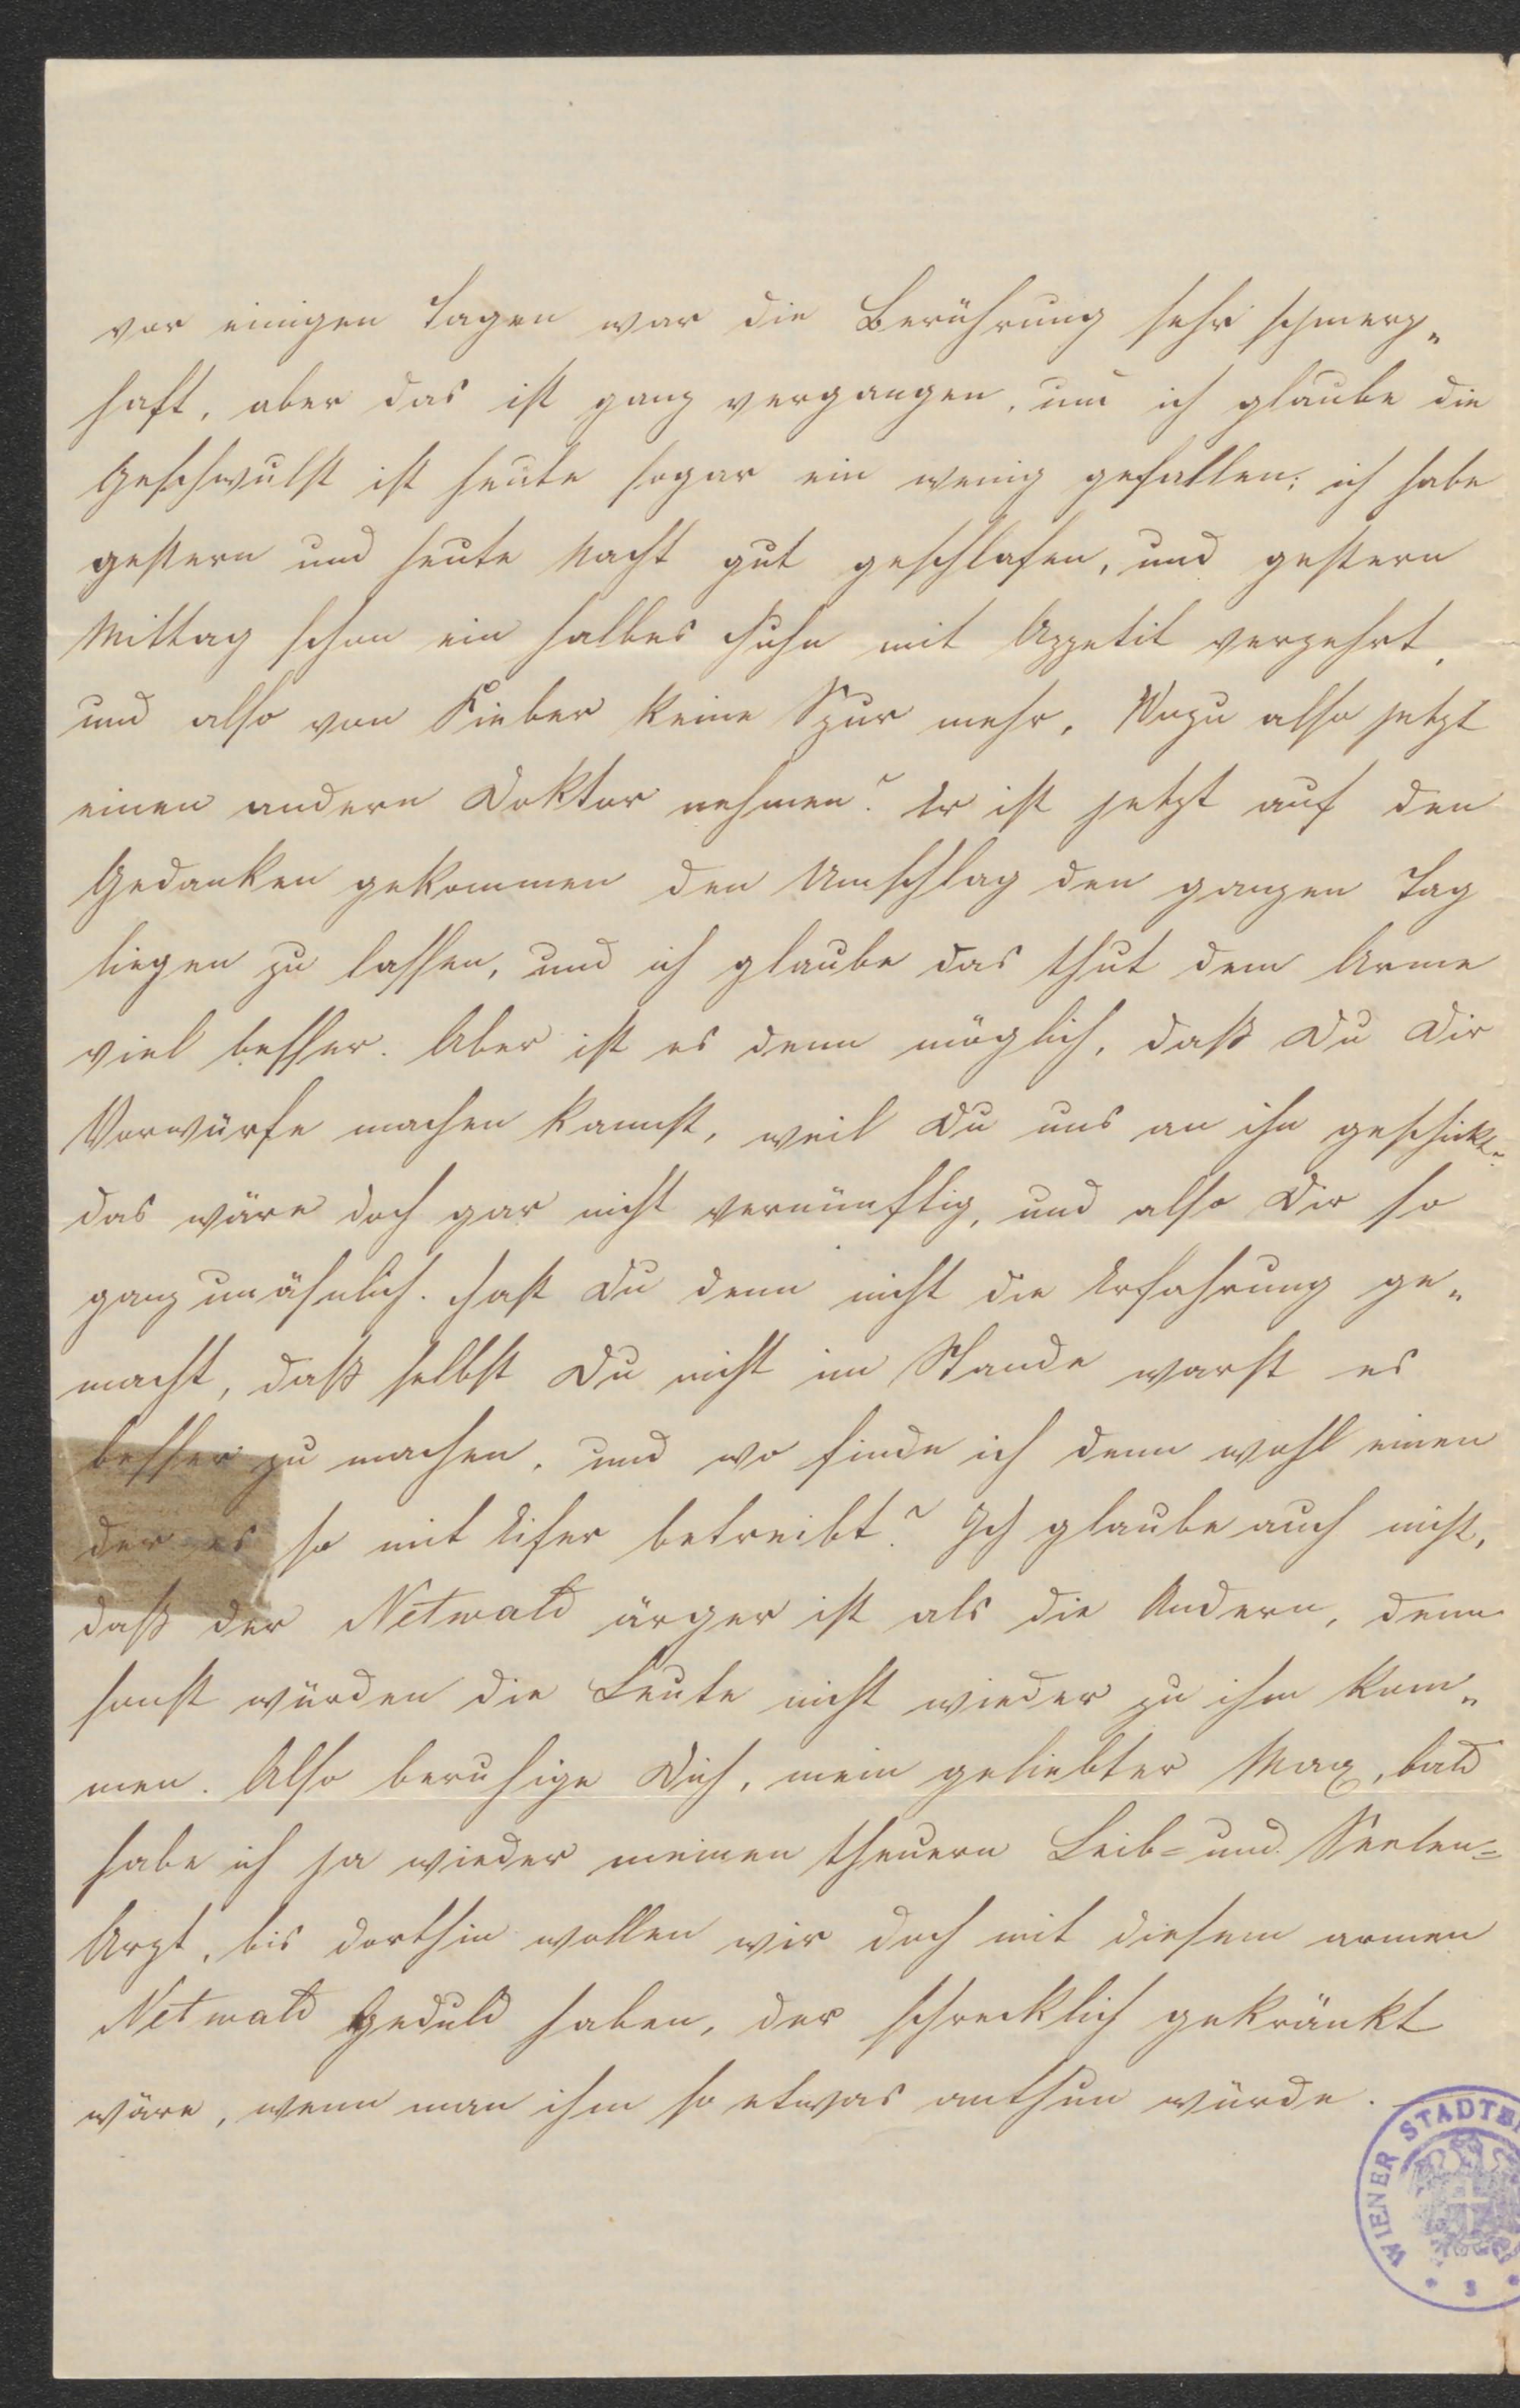 vor einigen Tagen war die Berührung sehr schmerz„
haft, aber das ist ganz vergangen, und ich glaube die
Geschwulst ist heute sogar ein wenig gefallen; ich habe
gestern und heute Nacht gut geschlafen, und gestern
Mittag schon ein halbes Huhn mit Appetit verzehrt,
und also von Fieber keine Spur mehr. Wozu also jetzt
einen andern Doktor nehmen? Er ist jetzt auf den
Gedanken gekommen den Umschlag den ganzen Tag
liegen zu lassen, und ich glaube das thut dem Arme
viel besser. Aber ist es denn möglich, daß Du Dir
Vorwürfe machen kannst, weil Du uns an ihn geschickt.
das wäre doch gar nicht vernünftig, und also Dir so
ganz unähnlich. Hast Du denn nicht die Erfahrung ge„
macht, daß selbst Du nicht im Stande warst es
besser zu machen, und wo finde ich denn wohl einen
der es so mit Eifer betreibt? Ich glaube auch nicht,
daß der Netwald ärger ist als die Andern, denn
sonst würden die Leute nicht wieder zu ihm kom„
men. Also beruhige Dich, mein geliebter Max, bald
habe ich ja wieder meinen theuern Leib= und Seelen=
Arzt, bis dorthin wollen wir doch mit diesem armen
Netwald Geduld haben, der schrecklich gekränkt
wäre, wenn man ihm so etwas anthun würde.
WIENER STADTBI